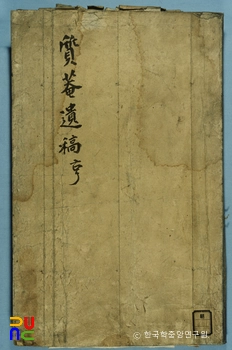 質菴遺稿 亨
© 한국학중앙연구원